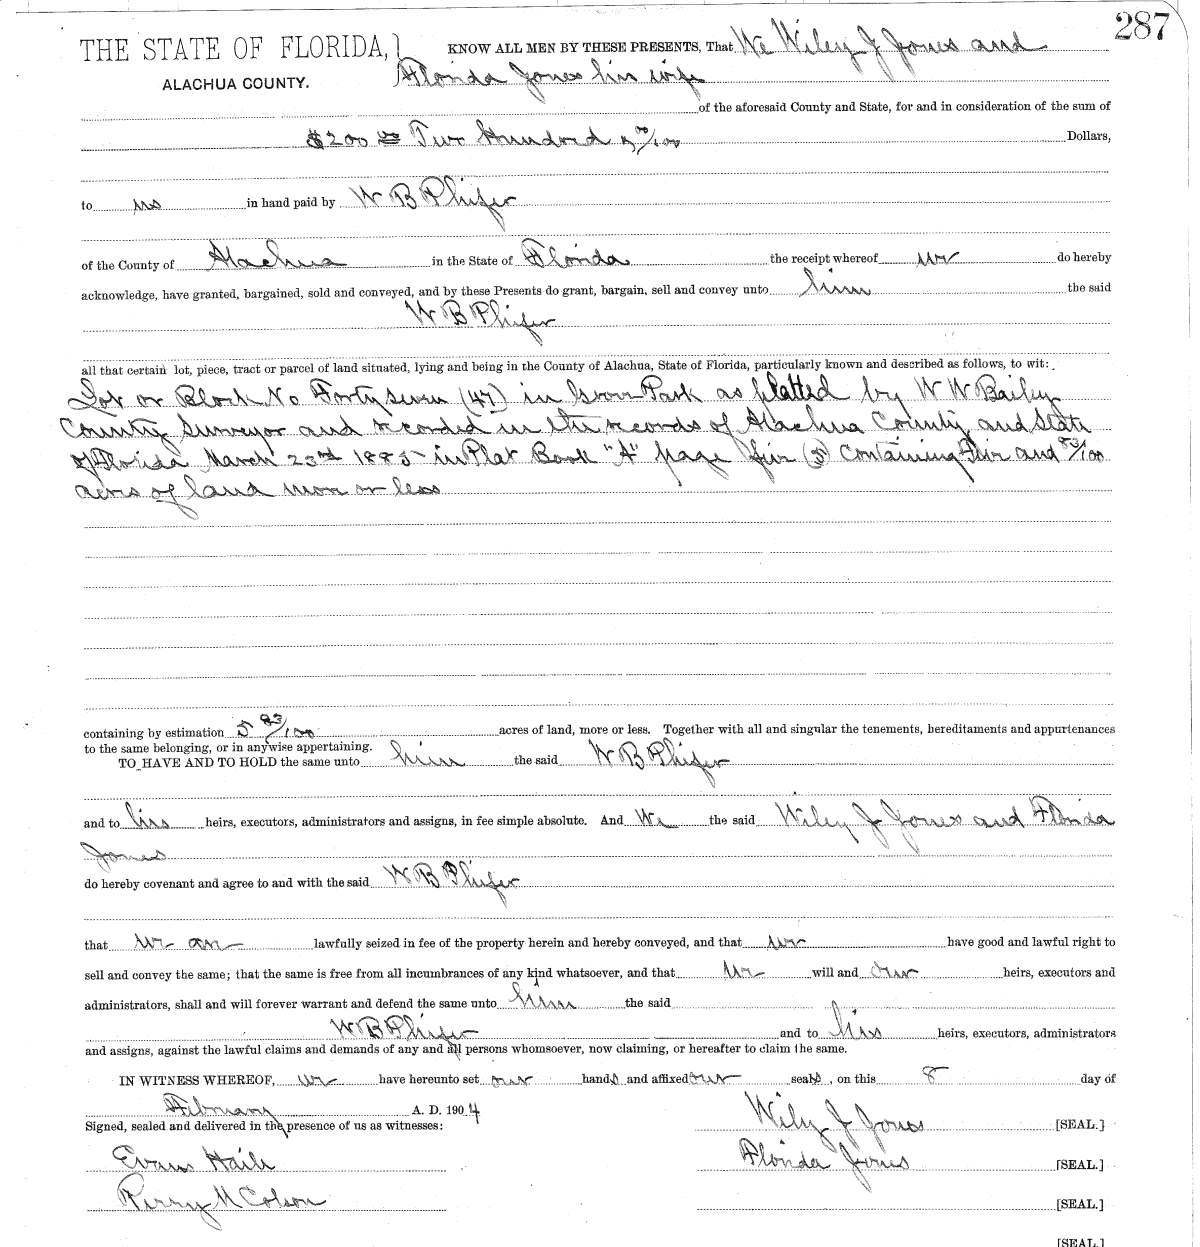 287
THE STATE OF FLORIDA,} KNOW ALL MEN BY THESE PRESENTS, That We Wiley J Jones and
ALACHUA COUNTY. Florida Jones his wife
of the aforesaid County and State, for and in consideration of the sum of
$200 00 Two Hundred & 00/100 Dollars,
to us in hand paid by W B Phifer
of the County of Alachua in the State of Florida the receipt whereof we do hereby
acknowledge, have granted, bargained, sold and conveyed, and by these Presents do grant, bargain, sell and convey unto him the said
W B Phifer
all that certain lot, piece, tract or parcel of land situated, lying and being in the County of Alachua, State of Florida, particularly known and described as follows, to wit:
Lot or Block No Forty Seven (47) in Grove Park as platted by W W Bailey
County Surveyor and recorded in the records of Alachua County and State
of Florida March 23rd 1885 in Plat Book "A" page five (5) Containing Five and 83/100
acres of land more or less
containing by estimation 5 83/100 acres of land, more or less. Together with all and singular the tenements, hereditaments and appurtenances
to the same belonging, or in anywise appertaining.
TO HAVE AND TO HOLD the same unto him the said W B Phifer
and to his heirs, executors, administrators and assigns, in fee simple absolute. And We the said Wiley J Jones and Florida
Jones
do hereby covenant and agree to and with the said W B Phifer
that we are lawfully seized in fee of the property herein and hereby conveyed, and that we have good and lawful right to
sell and convey the same; that the same is free from all incumbrances of any kind whatsoever, and that we will and our heirs, executors and
administrators, shall and will forever warrant and defend the same unto him the said
W B Phifer and to his heirs, executors, administrators
and assigns, against the lawful claims and demands of any and all persons whomsoever, now claiming, or hereafter to claim the same.
IN WITNESS WHEREOF, we have hereunto set our hands and affixed our seals, on this 8 day of
February A. D. 1904
Signed, sealed and delivered in the presence of us as witnesses: Wiley J Jones [SEAL.]
Evans Haile Florida Jones [SEAL.]
Perry M Colson [SEAL.]
[SEAL.]